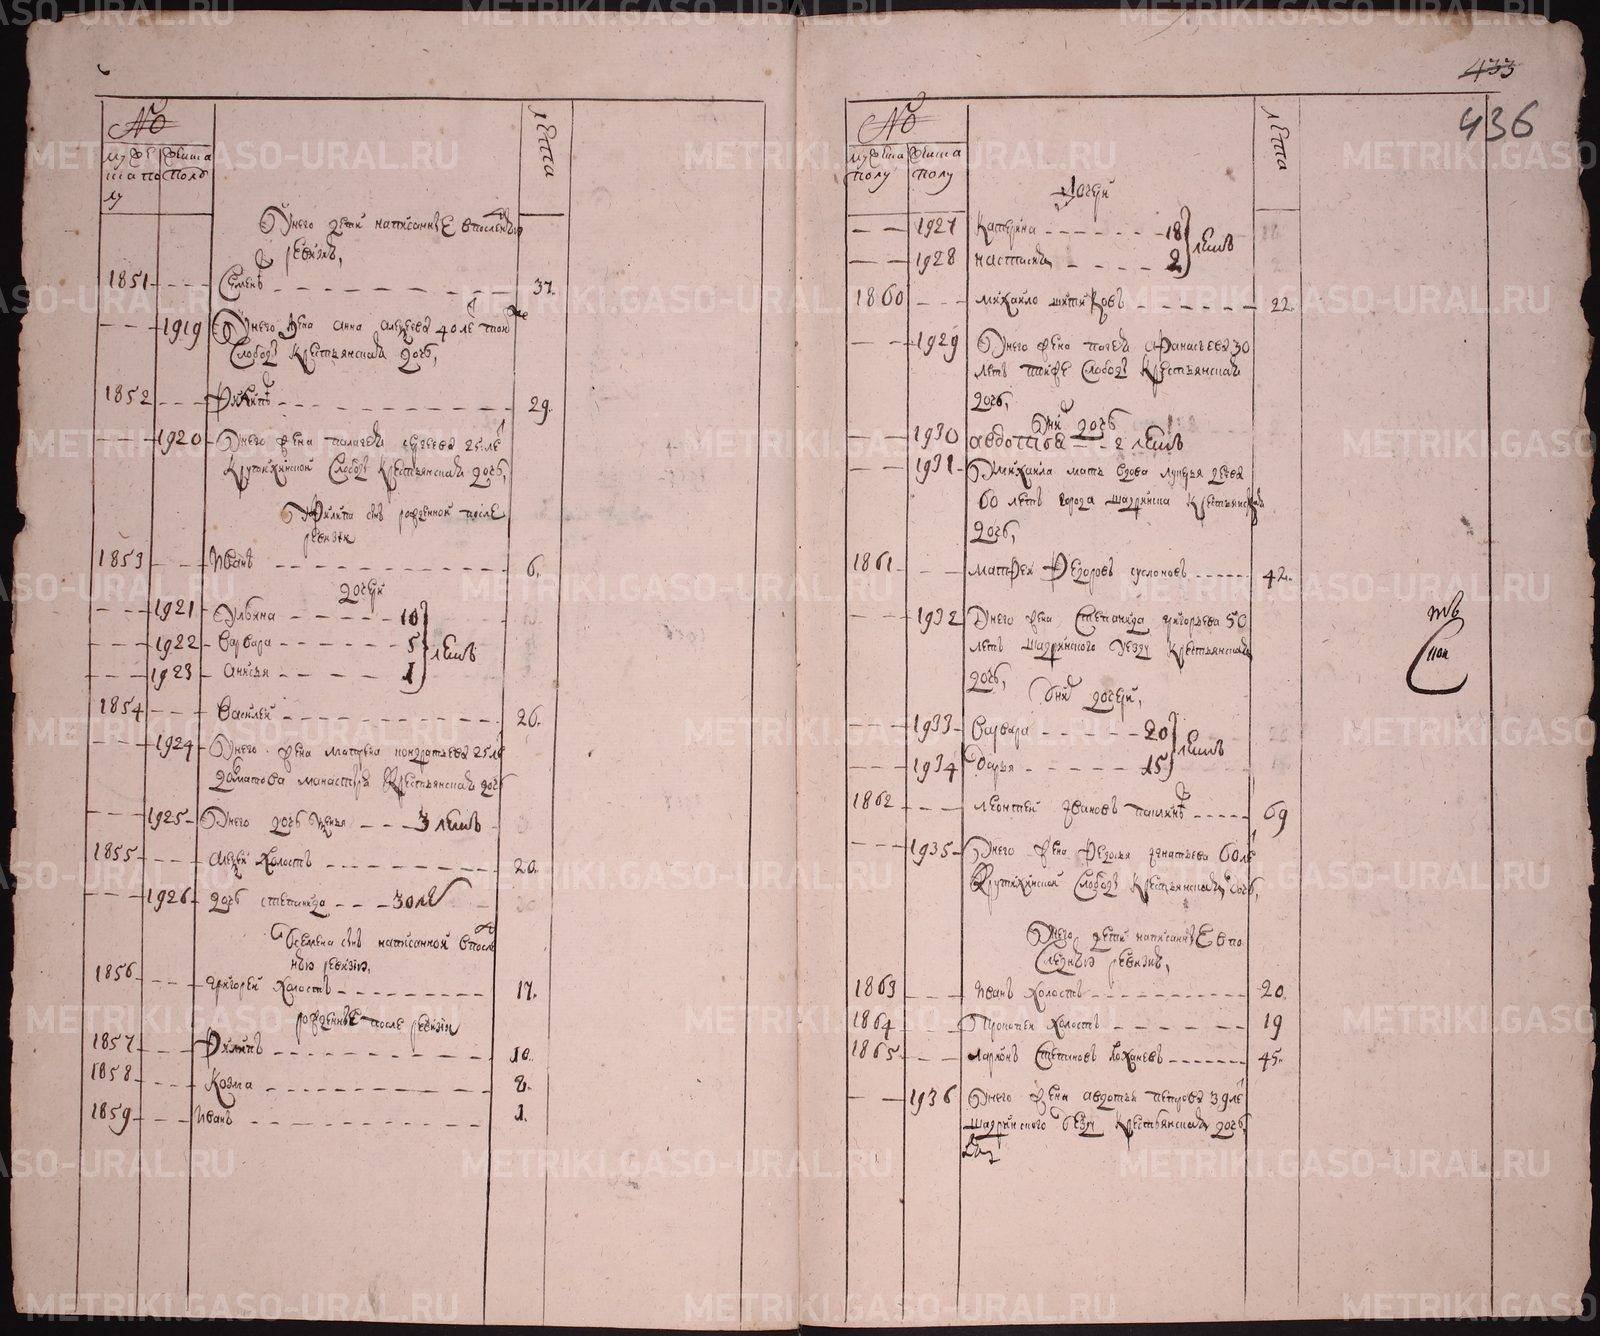 433
436
№
мужеска полу
женска полу
лета
У него дети написанные в последнюю
ревизию,
1851 Семенъ 37.
1919 У него жена Анна Алексеева 40 ле тои же
слободы крестьянская дочь,
1852 Филипъ 29.
1920 У него жена Палагея Сергеева 25 ле
Крутихинской слободы крестьянская дочь,
У Филипа сынъ рожденной после
ревизии
1853 Иванъ 6.
дочери
1921 Ульяна 10
1922 Варвара 5 летъ
1923 Анисья 1
1854 Василей 26.
1924 У него жена Матрена Кондратьева 25 ле
Долматова манастыря крестьянская дочь
1925 У него дочь 3 летъ
1855 Алексей холостъ 20.
1926 дочь Степанида 30 ле
У Семена сынъ написанной в послед
нюю ревизию,
1856 Григорей холостъ 17.
рожденные после ревизии
1857 Филипъ 10.
1858 Козма 8.
1859 Иванъ 1.
№
мужеска полу
женска полу
лета
Дочери
1927 Катерина 18
1928 Настасья 2 летъ
1860 Михайло 22.
1929 У него жена Афанасьева 30
летъ слободы крестьянская
дочь,
У них дочь
1930 Авдотья 2 летъ
1931 У Михаила мать вдова Лукерья
60 летъ города Шадринска крестьянская
дочь,
1861 Матфей Федоровъ Суслоновъ 42.
1932 У него жена Степанида Григорьева 50
летъ Шадринского уезду крестьянская
дочь,
У них дочери,
1933 Варвара 20
1934 Дарья 15 летъ
1862 Леонтей Ивановъ 69
1935 У него жена Федосья Игнатьева 60 ле
Крутихинской слободы крестьянская дочь,
У него дети написанные в по
следнюю ревизию,
1863 Иванъ холостъ 20.
1864 Прокопей холостъ 19
1865 Ларионъ Степановъ 45.
1936 У него жена Авдотья Петрова 39 ле
Шадринского уезду крестьянская дочь,